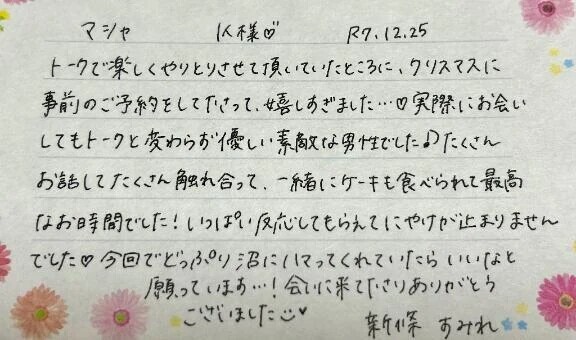 マシャ K様♡ R7.12.25
トークで楽しくやりとりさせて頂いていたところに、クリスマスに
事前のご予約をして下さって、嬉しすぎました…♡実際にお会い
してもトークと変わらず優しい素敵な男性でした♪たくさん
お話してたくさん触れ合って、一緒にケーキも食べられて最高
なお時間でした！いっぱい反応してもらえてにやけが止まりません
でした♡今回でどっぷり沼にハマってくれていたらいいなと
願っています…！会いに来て下さりありがとう
ございました
新條 すみれ